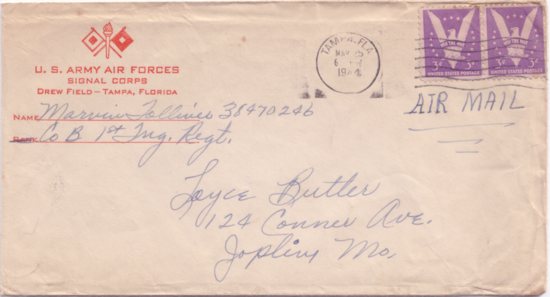 U. S. ARMY AIR FORCES
SIGNAL CORPS
DREW FIELD – TAMPA, FLORIDA
Name Marvin 38470246
Co B 1st Tng. Regt.
TAMPA, FLA.
MAR
6 PM
1944
3¢ 3¢
UNITED STATES POSTAGE UNITED STATES POSTAGE
AIR MAIL
Joyce Butler
124 Conner Ave.
Joplin, Mo.